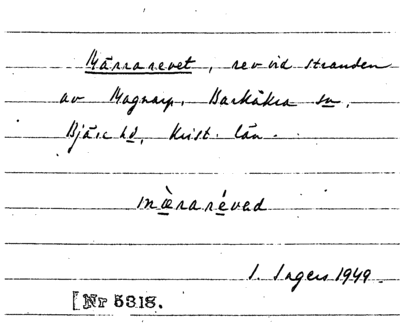 Märrarevet, rev vid stranden
av Magnarp, Barkåkra sn,
Bjäre hd, Krist. län.
mæ̀rarévad
I. Ingers 1949.
[Nr 5318.